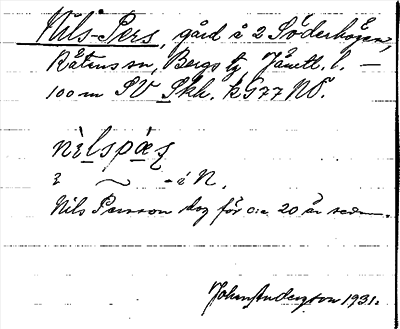 Nils-Pers, gård å 2 Söderhögen,
Rätans sn, Bergs tg, Jämtl. l. —
100 m SV Skh. kG77 NO.
nìlspæ̀ʂ
i ~ -ɩ́n.
Nils Persson dog för c:a 20 år sedan.
John Anderzon 1931.